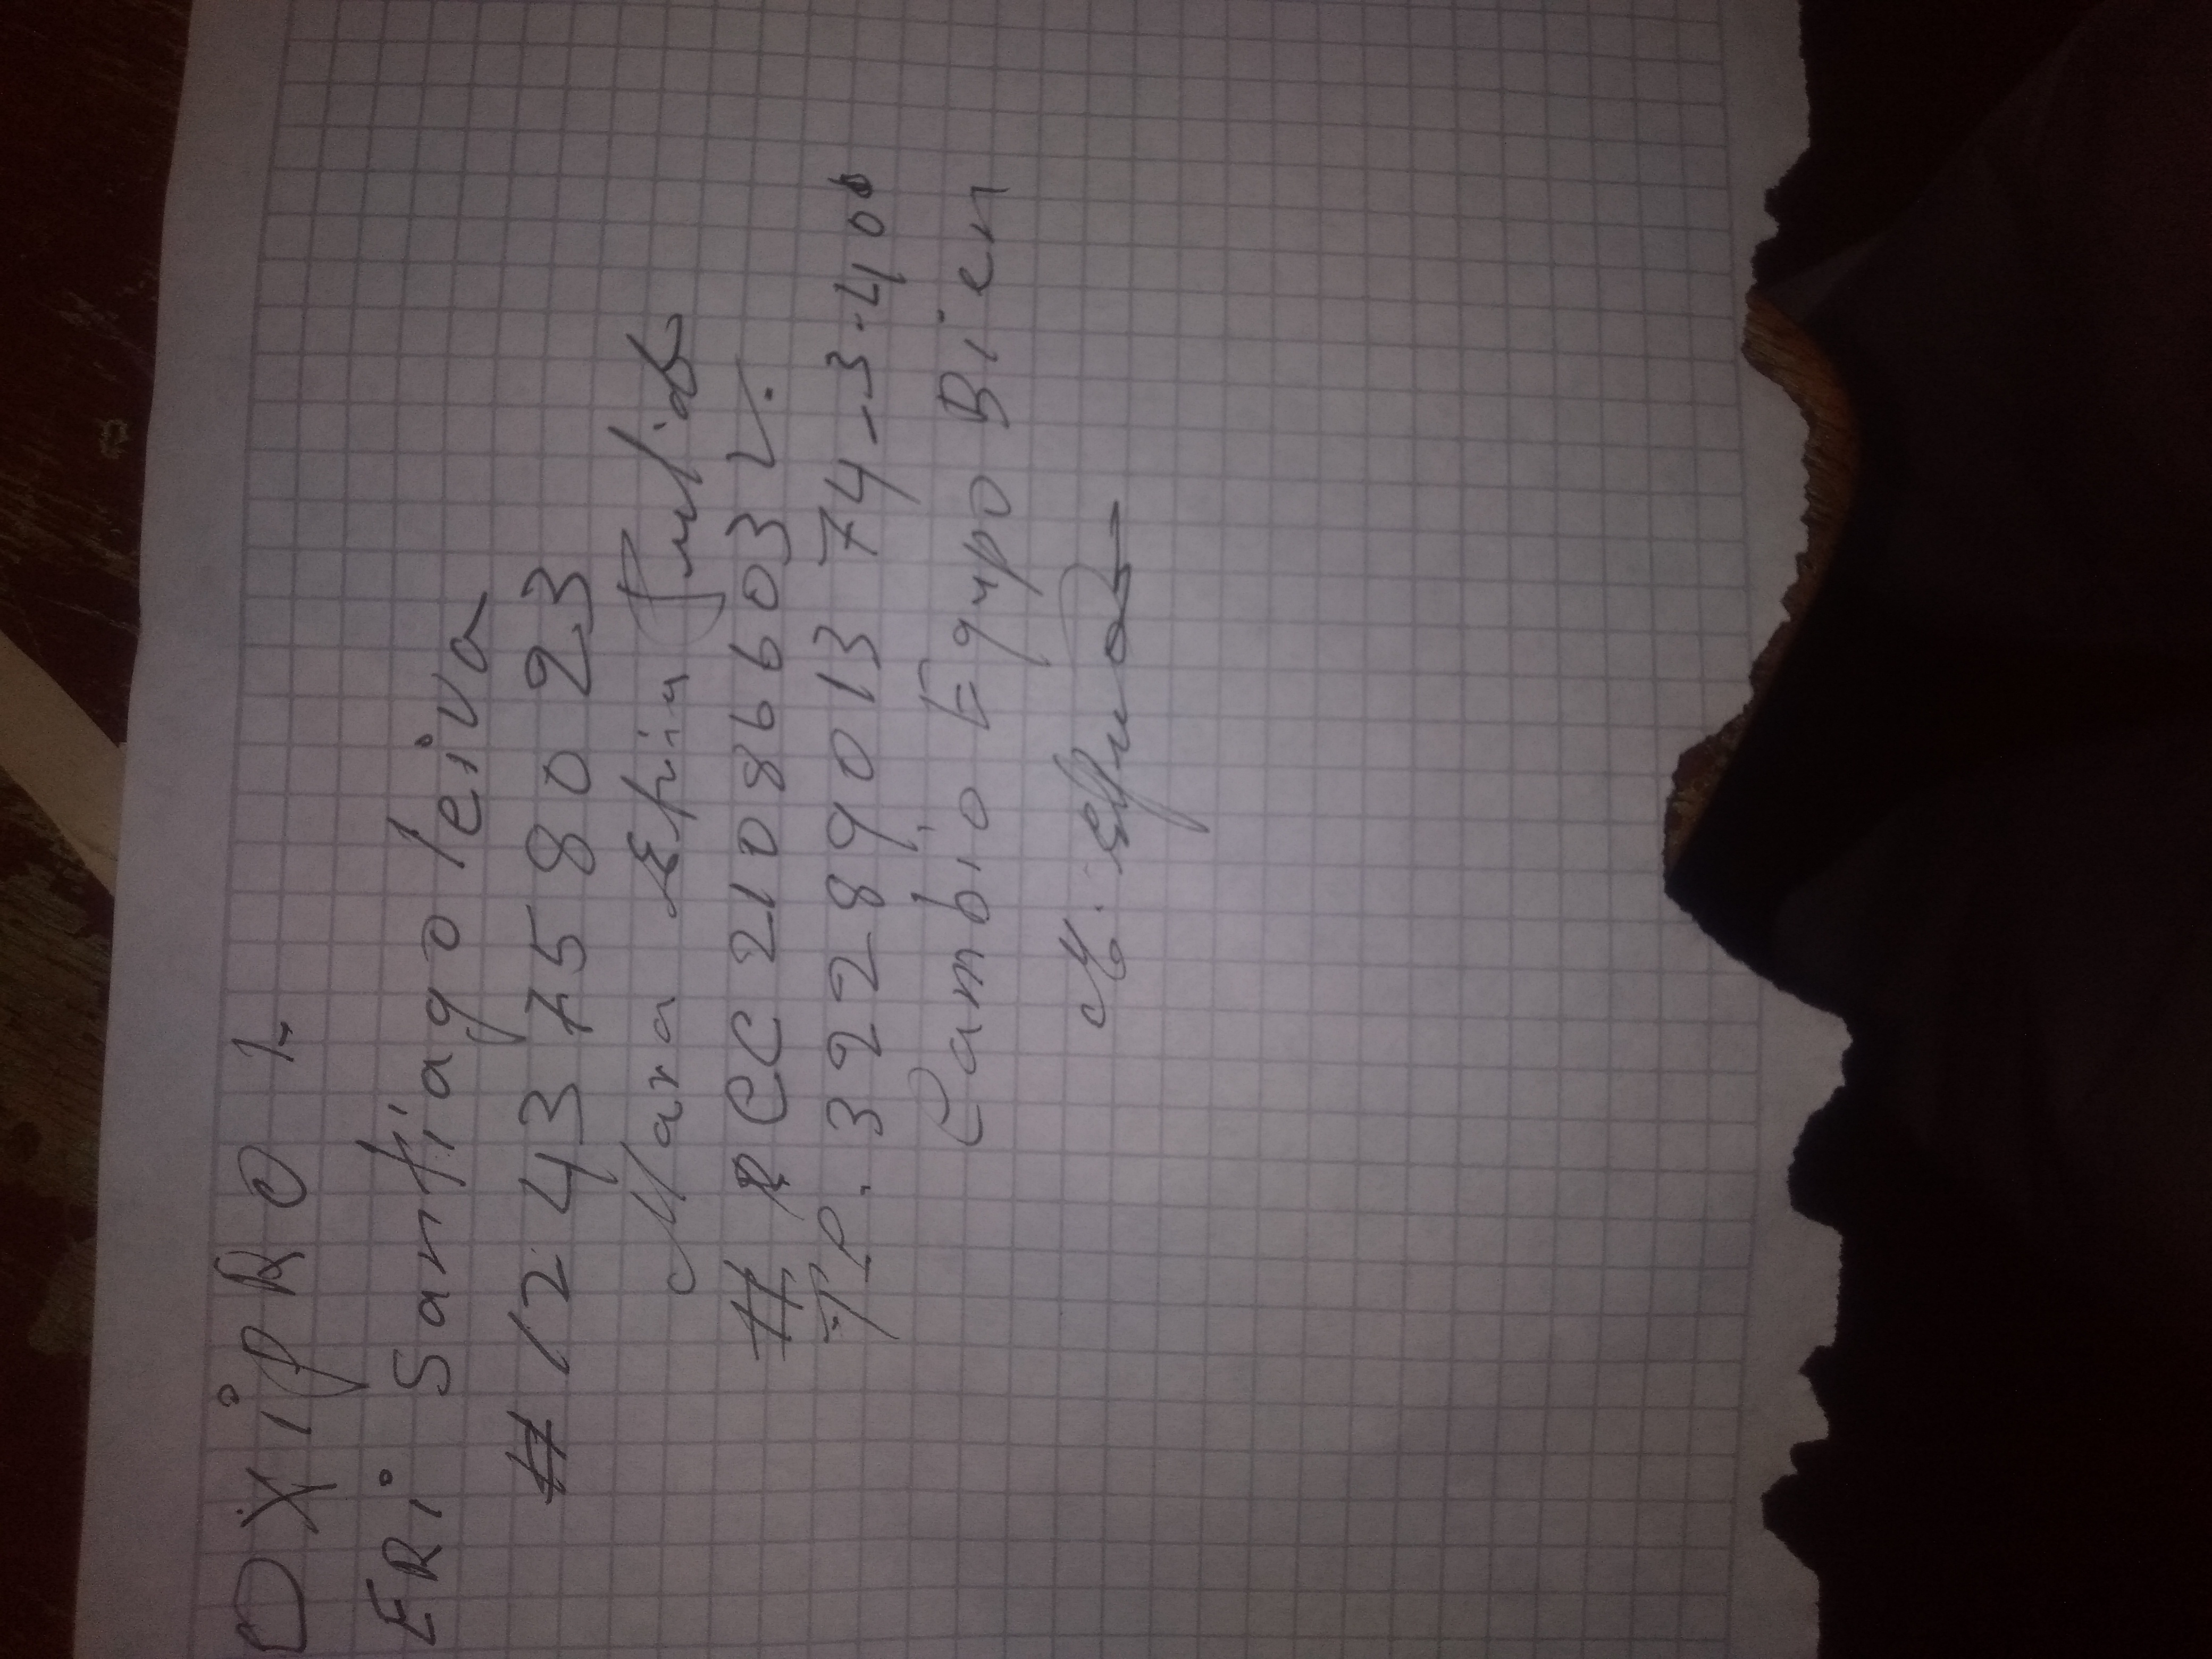 DXiPRO L
ERi Santiago leiva
# 12 43 75 80 23
Mara
# RCC 21086603 V.
TP. 3 22 89013 74-3-400
Cambio Equpo Bien